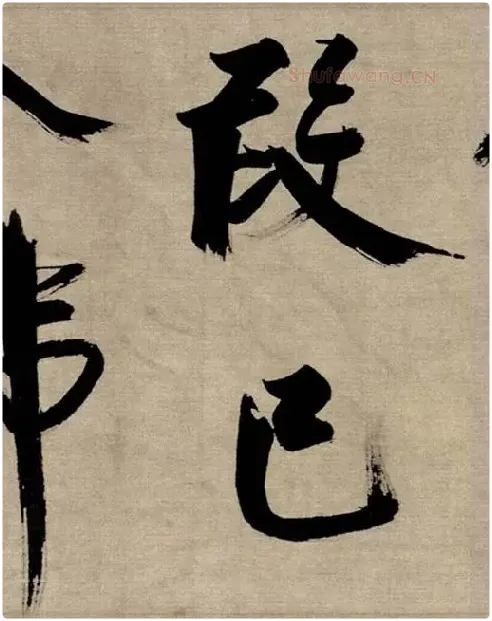 Shufawang.CN
段
已